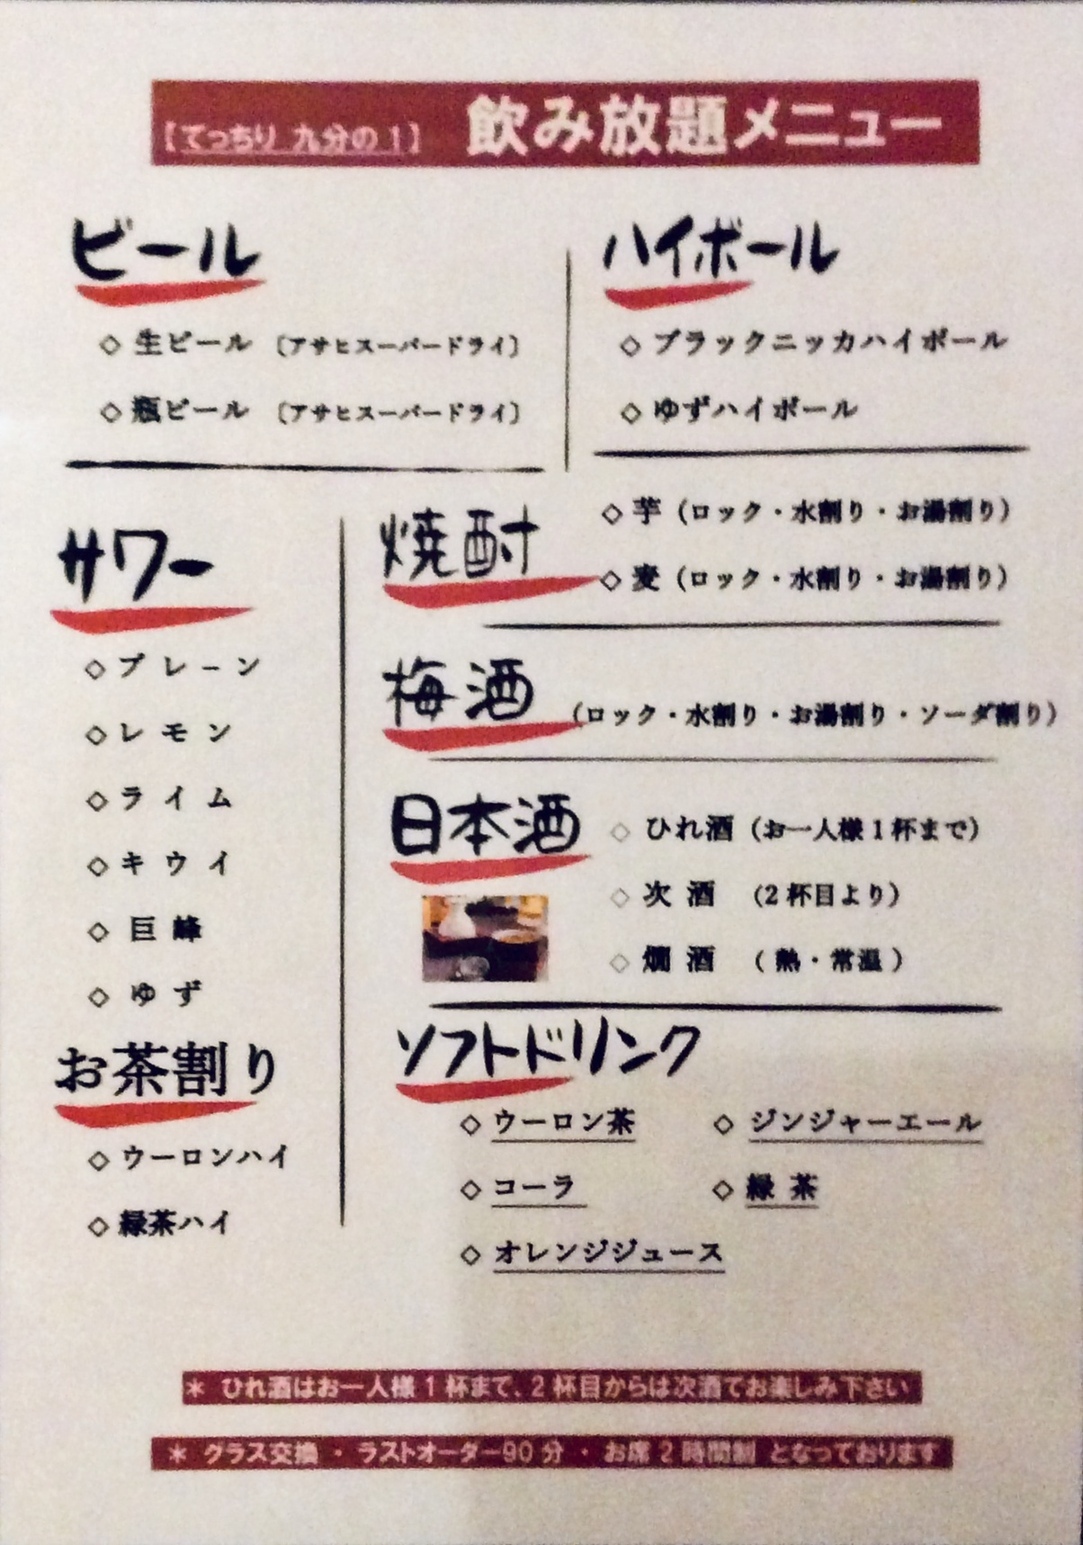 [てっちり 九分の1] 飲み放題メニュー
ビール
◇ 生ビール 〔アサヒスーパードライ〕
◇ 瓶ビール 〔アサヒスーパードライ〕
ハイボール
◇ ブラックニッカハイボール
◇ ゆずハイボール
サワー
◇ プレーン
◇ レモン
◇ ライム
◇ キウイ
◇ 巨峰
◇ ゆず
お茶割り
◇ ウーロンハイ
◇ 緑茶ハイ
焼酎
◇ 芋（ロック・水割り・お湯割り）
◇ 麦（ロック・水割り・お湯割り）
梅酒 （ロック・水割り・お湯割り・ソーダ割り）
日本酒
◇ ひれ酒（お一人様1杯まで）
◇ 次酒 （2杯目より）
◇ 燗酒 （熱・常温）
ソフトドリンク
◇ ウーロン茶 ◇ ジンジャーエール
◇ コーラ ◇ 緑茶
◇ オレンジジュース
＊ ひれ酒はお一人様1杯まで、2杯目からは次酒でお楽しみ下さい
＊ グラス交換 ・ ラストオーダー90分 ・ お席2時間制 となっております